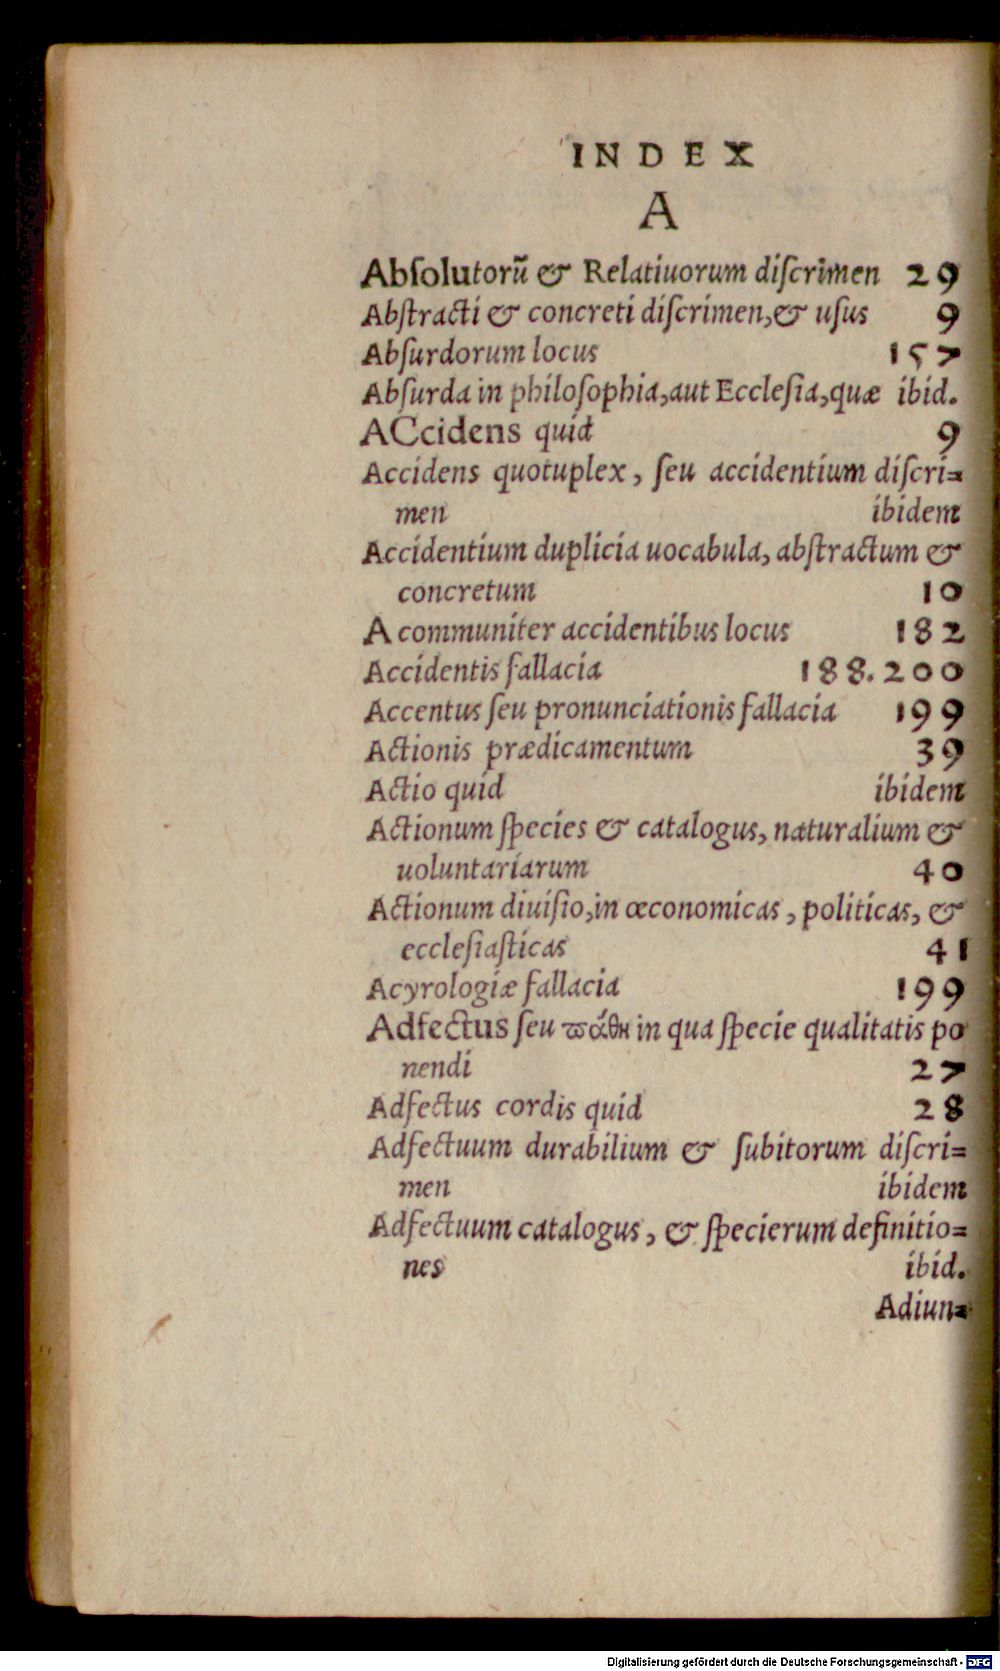 INDEX
A
Abſolutorū & Relatiuorum diſcrimen 29
Abſtracti & concreti diſcrimen,& uſus 9
Abſurdorum locus 157
Abſurda in philoſophia,aut Eccleſia,quæ ibid.
ACcidens quid 9
Accidens quotuplex, ſeu accidentium diſcri=
men ibidem
Accidentium duplicia uocabula, abſtractum &
concretum 10
A communiter accidentibus locus 182
Accidentis fallacia 188.200
Accentus ſeu pronunciationis fallacia 199
Actionis prædicamentum 39
Actio quid ibidem
Actionum ſpecies & catalogus, naturalium &
uoluntariarum 40
Actionum diuiſio,in œconomicas, politicas, &
eccleſiaſticas 41
Acyrologiæ fallacia 199
Adfectus ſeu ϖάθη in qua ſpecie qualitatis po
nendi 27
Adfectus cordis quid 28
Adfectuum durabilium & ſubitorum diſcri=
men ibidem
Adfectuum catalogus, & ſpecierum definitio=
nes ibid.
Adiun=
Digitalisierung gefördert durch die Deutsche Forschungsgemeinschaft - DFG